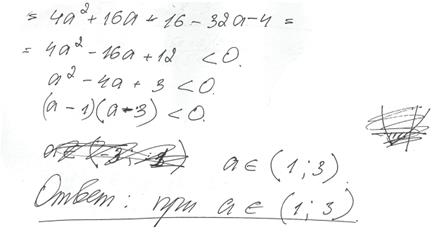 = 4a² + 16a + 16 - 32a - 4 =
= 4a² - 16a + 12 < 0.
a² - 4a + 3 < 0.
(a - 1)(a - 3) < 0.
a ∈ (1; 3)
Ответ: при a ∈ (1; 3)